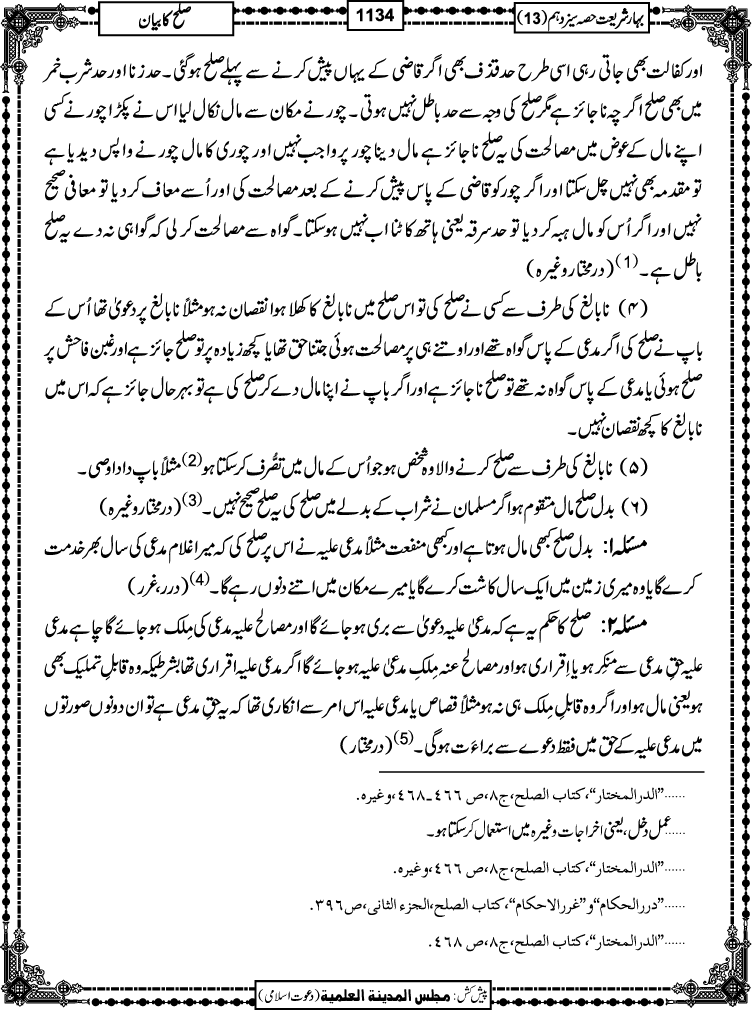 بہارِشریعت حصہ سیزدہم (13)
1134
صلح کا بیان
اور کفالت بھی جاتی رہی اسی طرح حد قذف بھی اگر قاضی کے یہاں پیش کرنے سے پہلے صلح ہوگئی۔ حد زنا اور حد شرب خمر
میں بھی صلح اگرچہ ناجائز ہے مگر صلح کی وجہ سے حد باطل نہیں ہوتی۔ چور نے مکان سے مال نکال لیا اس نے پکڑا چور نے کسی
اپنے مال کے عوض میں مصالحت کی یہ صلح ناجائز ہے مال دینا چور پر واجب نہیں اور چوری کا مال چور نے واپس دیدیا ہے
تو مقدمہ بھی نہیں چل سکتا اور اگر چور کو قاضی کے پاس پیش کرنے کے بعد مصالحت کی اور اُسے معاف کر دیا تو معافی صحیح
نہیں اور اگر اُس کو مال ہبہ کر دیا تو حد سرقہ یعنی ہاتھ کاٹنا اب نہیں ہوسکتا۔ گواہ سے مصالحت کر لی کہ گواہی نہ دے یہ صلح
باطل ہے۔(1) (درمختار وغیرہ)
(۴) نابالغ کی طرف سے کسی نے صلح کی تو اس صلح میں نابالغ کا کھلا ہوا نقصان نہ ہو مثلاً نابالغ پر دعویٰ تھا اُس کے
باپ نے صلح کی اگر مدعی کے پاس گواہ تھے اور اوتنے ہی پر مصالحت ہوئی جتنا حق تھا یا کچھ زیادہ پر تو صلح جائز ہے اور غبن فاحش پر
صلح ہوئی یا مدعی کے پاس گواہ نہ تھے تو صلح ناجائز ہے اور اگر باپ نے اپنا مال دے کر صلح کی ہے تو بہرحال جائز ہے کہ اس میں
نابالغ کا کچھ نقصان نہیں۔
(۵) نابالغ کی طرف سے صلح کرنے والا وہ شخص ہو جو اُس کے مال میں تصُّرف کرسکتا ہو(2) مثلاً باپ دادا وصی۔
(۶) بدل صلح مال متقوم ہو اگر مسلمان نے شراب کے بدلے میں صلح کی یہ صلح صحیح نہیں۔(3) (درمختار وغیرہ)
مسئلہ۱: بدل صلح کبھی مال ہوتا ہے اور کبھی منفعت مثلاً مدعی علیہ نے اس پر صلح کی کہ میرا غلام مدعی کی سال بھر خدمت
کرے گا یا وہ میری زمین میں ایک سال کاشت کرے گا یا میرے مکان میں اتنے دنوں رہے گا۔(4) (درر، غرر)
مسئلہ۲: صلح کا حکم یہ ہے کہ مدعیٰ علیہ دعویٰ سے بری ہو جائے گا اور مصالح علیہ مدعی کی مِلک ہو جائے گا چاہے مدعی
علیہ حقِ مدعی سے منکِر ہو یا اِقراری ہو اور مصالح عنہ ملکِ مدعیٰ علیہ ہو جائے گا اگر مدعی علیہ اقراری تھا بشرطیکہ وہ قابلِ تملیک بھی
ہو یعنی مال ہو اور اگر وہ قابلِ مِلک ہی نہ ہو مثلاً قصاص یا مدعی علیہ اس امر سے انکاری تھا کہ یہ حقِ مدعی ہے تو ان دونوں صورتوں
میں مدعی علیہ کے حق میں فقط دعوے سے براءَت ہوگی۔(5) (درمختار)
......"الدرالمختار"، کتاب الصلح، ج۸، ص ٤٦٦۔٤٦٨، وغیرہ.
......عمل دخل، یعنی اخراجات وغیرہ میں استعمال کرسکتا ہو۔
......"الدرالمختار"، کتاب الصلح، ج۸، ص ٤٦٦، وغیرہ.
......"دررالحکام" و "غررالاحکام"، کتاب الصلح، الجزء الثانی، ص ٣٩٦.
......"الدرالمختار"، کتاب الصلح، ج۸، ص ٤٦٨.
پیش کش: مجلس المدینۃ العلمیۃ (دعوت اسلامی)